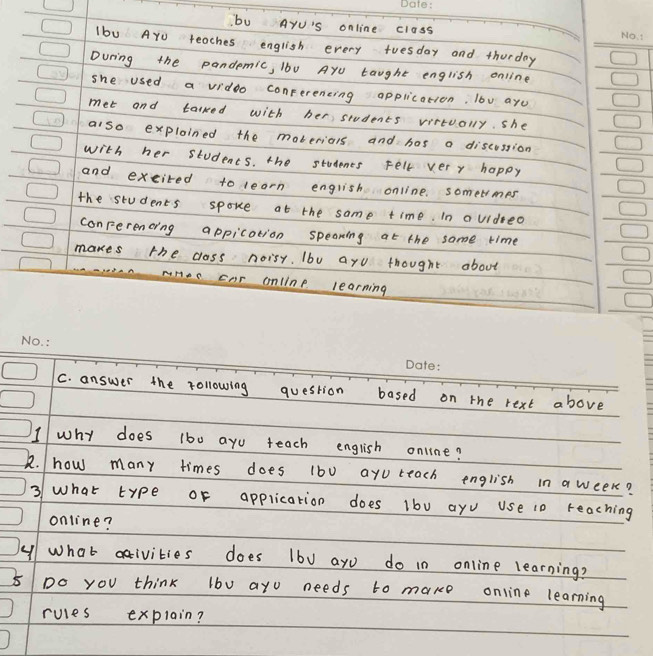 Date:
No.:
Ibu AYU'S online class
Ibu AYU teaches english every tuesday and thurday
During the pandemic, Ibu AYU taught english online
she used a video conferencing application. Ibu ayu
met and talked with her students virtually. she
also explained the materials and has a discussion
with her students. the students felt very happy
and excited to learn english online. sometimes
the students spoke at the same time. In a video
conferencing appication speaking at the same time
makes the class noisy. Ibu ayu thought about
rules for online learning
No.:
Date:
C. answer the following question based on the text above
1 why does Ibu ayu teach english online?
2. how many times does Ibu ayu teach english in a week?
3 what type of application does Ibu ayu use in teaching
online?
4 what activities does Ibu ayu do in online learning?
5 Do you think Ibu ayu needs to make online learning
rules explain?